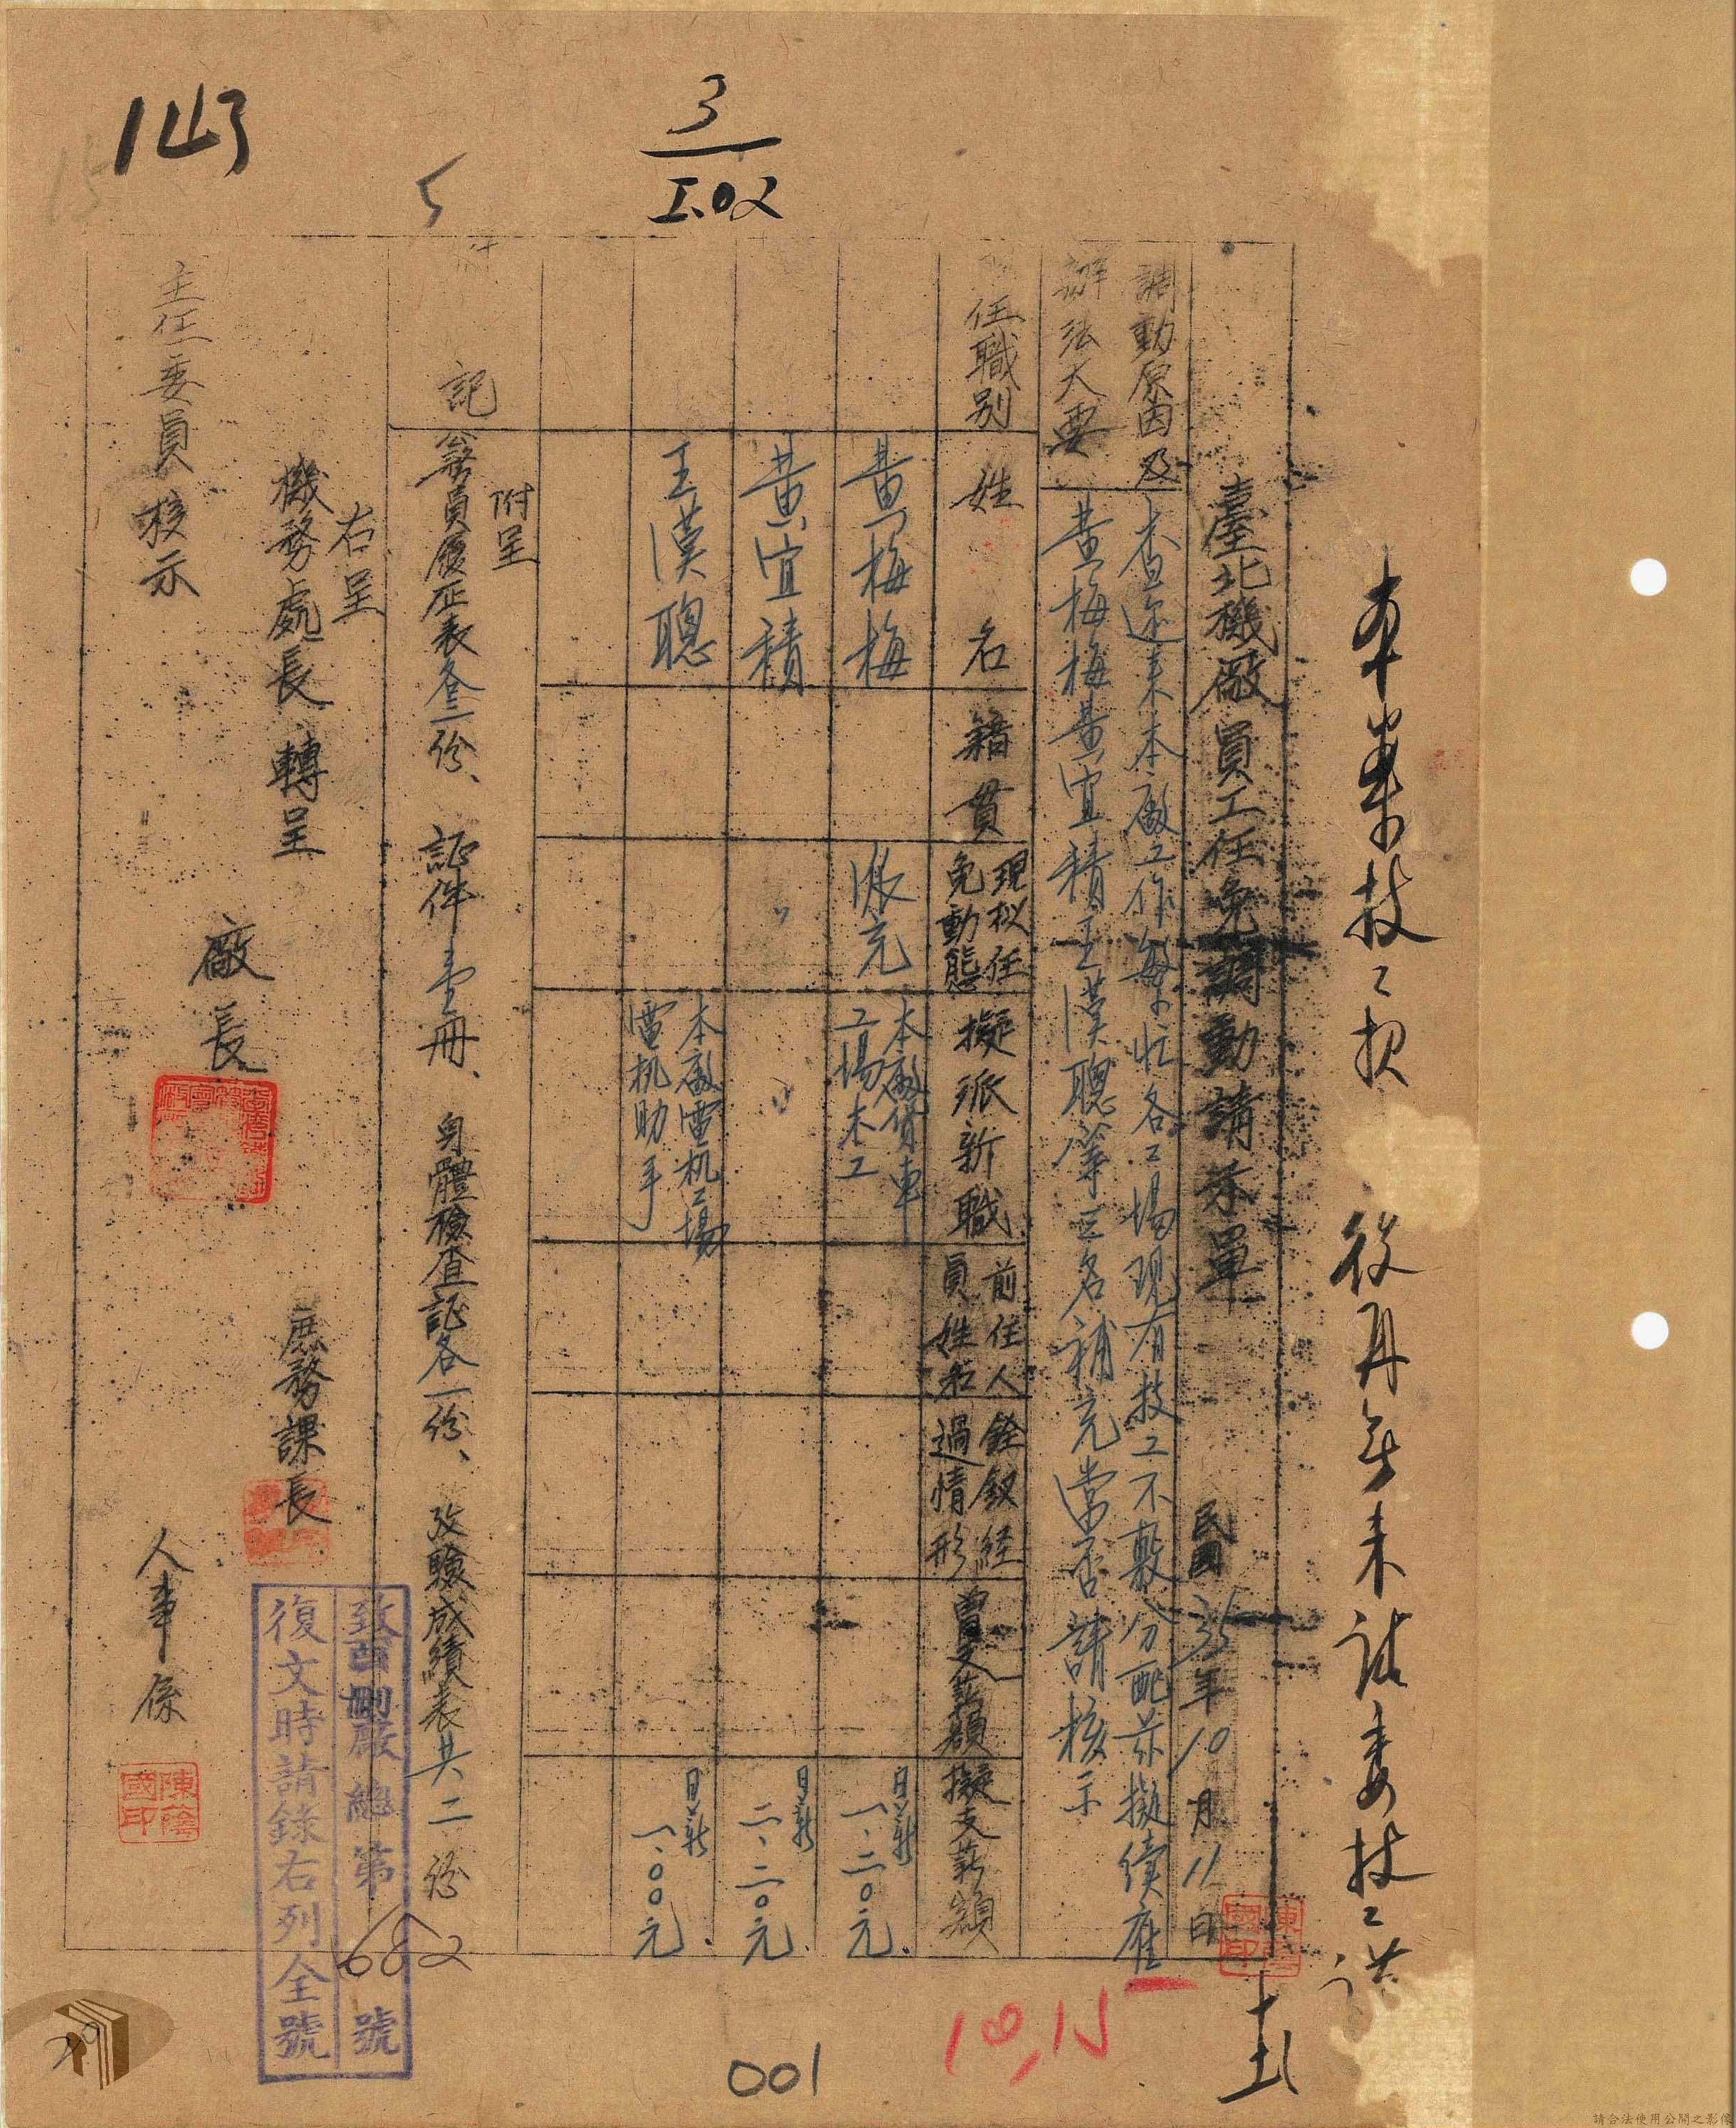 143
3
I.02
5
臺北機廠員工任免調動請示單
民國35年10月11日
調動原因及
辦法大要
查邇來本廠工作繁忙各工場現有技工不敷分配茲擬續雇
黃梅梅黃宜積王漢聰等三名補充當否請核示
任職別
姓名
籍貫
現擬任
免動態
擬派新職
前任人
員姓名
銓敘経
過情形
曾支薪額
擬支薪額
黃梅梅
派充
本廠貨車
工場木工
日薪
一.二〇元.
黃宜積
〃
〃
日薪
二.二〇元.
王漢聰
本廠電机工場
電机助手
日薪
一.〇〇元.
附記
附呈
該員履歷表各三份、証件壹冊、身體檢查証各一份、攷驗成績表共二份
右呈
機務處長 轉呈
主任委員 核示
廠長
庶務課長
人事係
陳蔭國印
復文時請錄右列全號
總第682號
10,15
001
請合法使用公開之影像